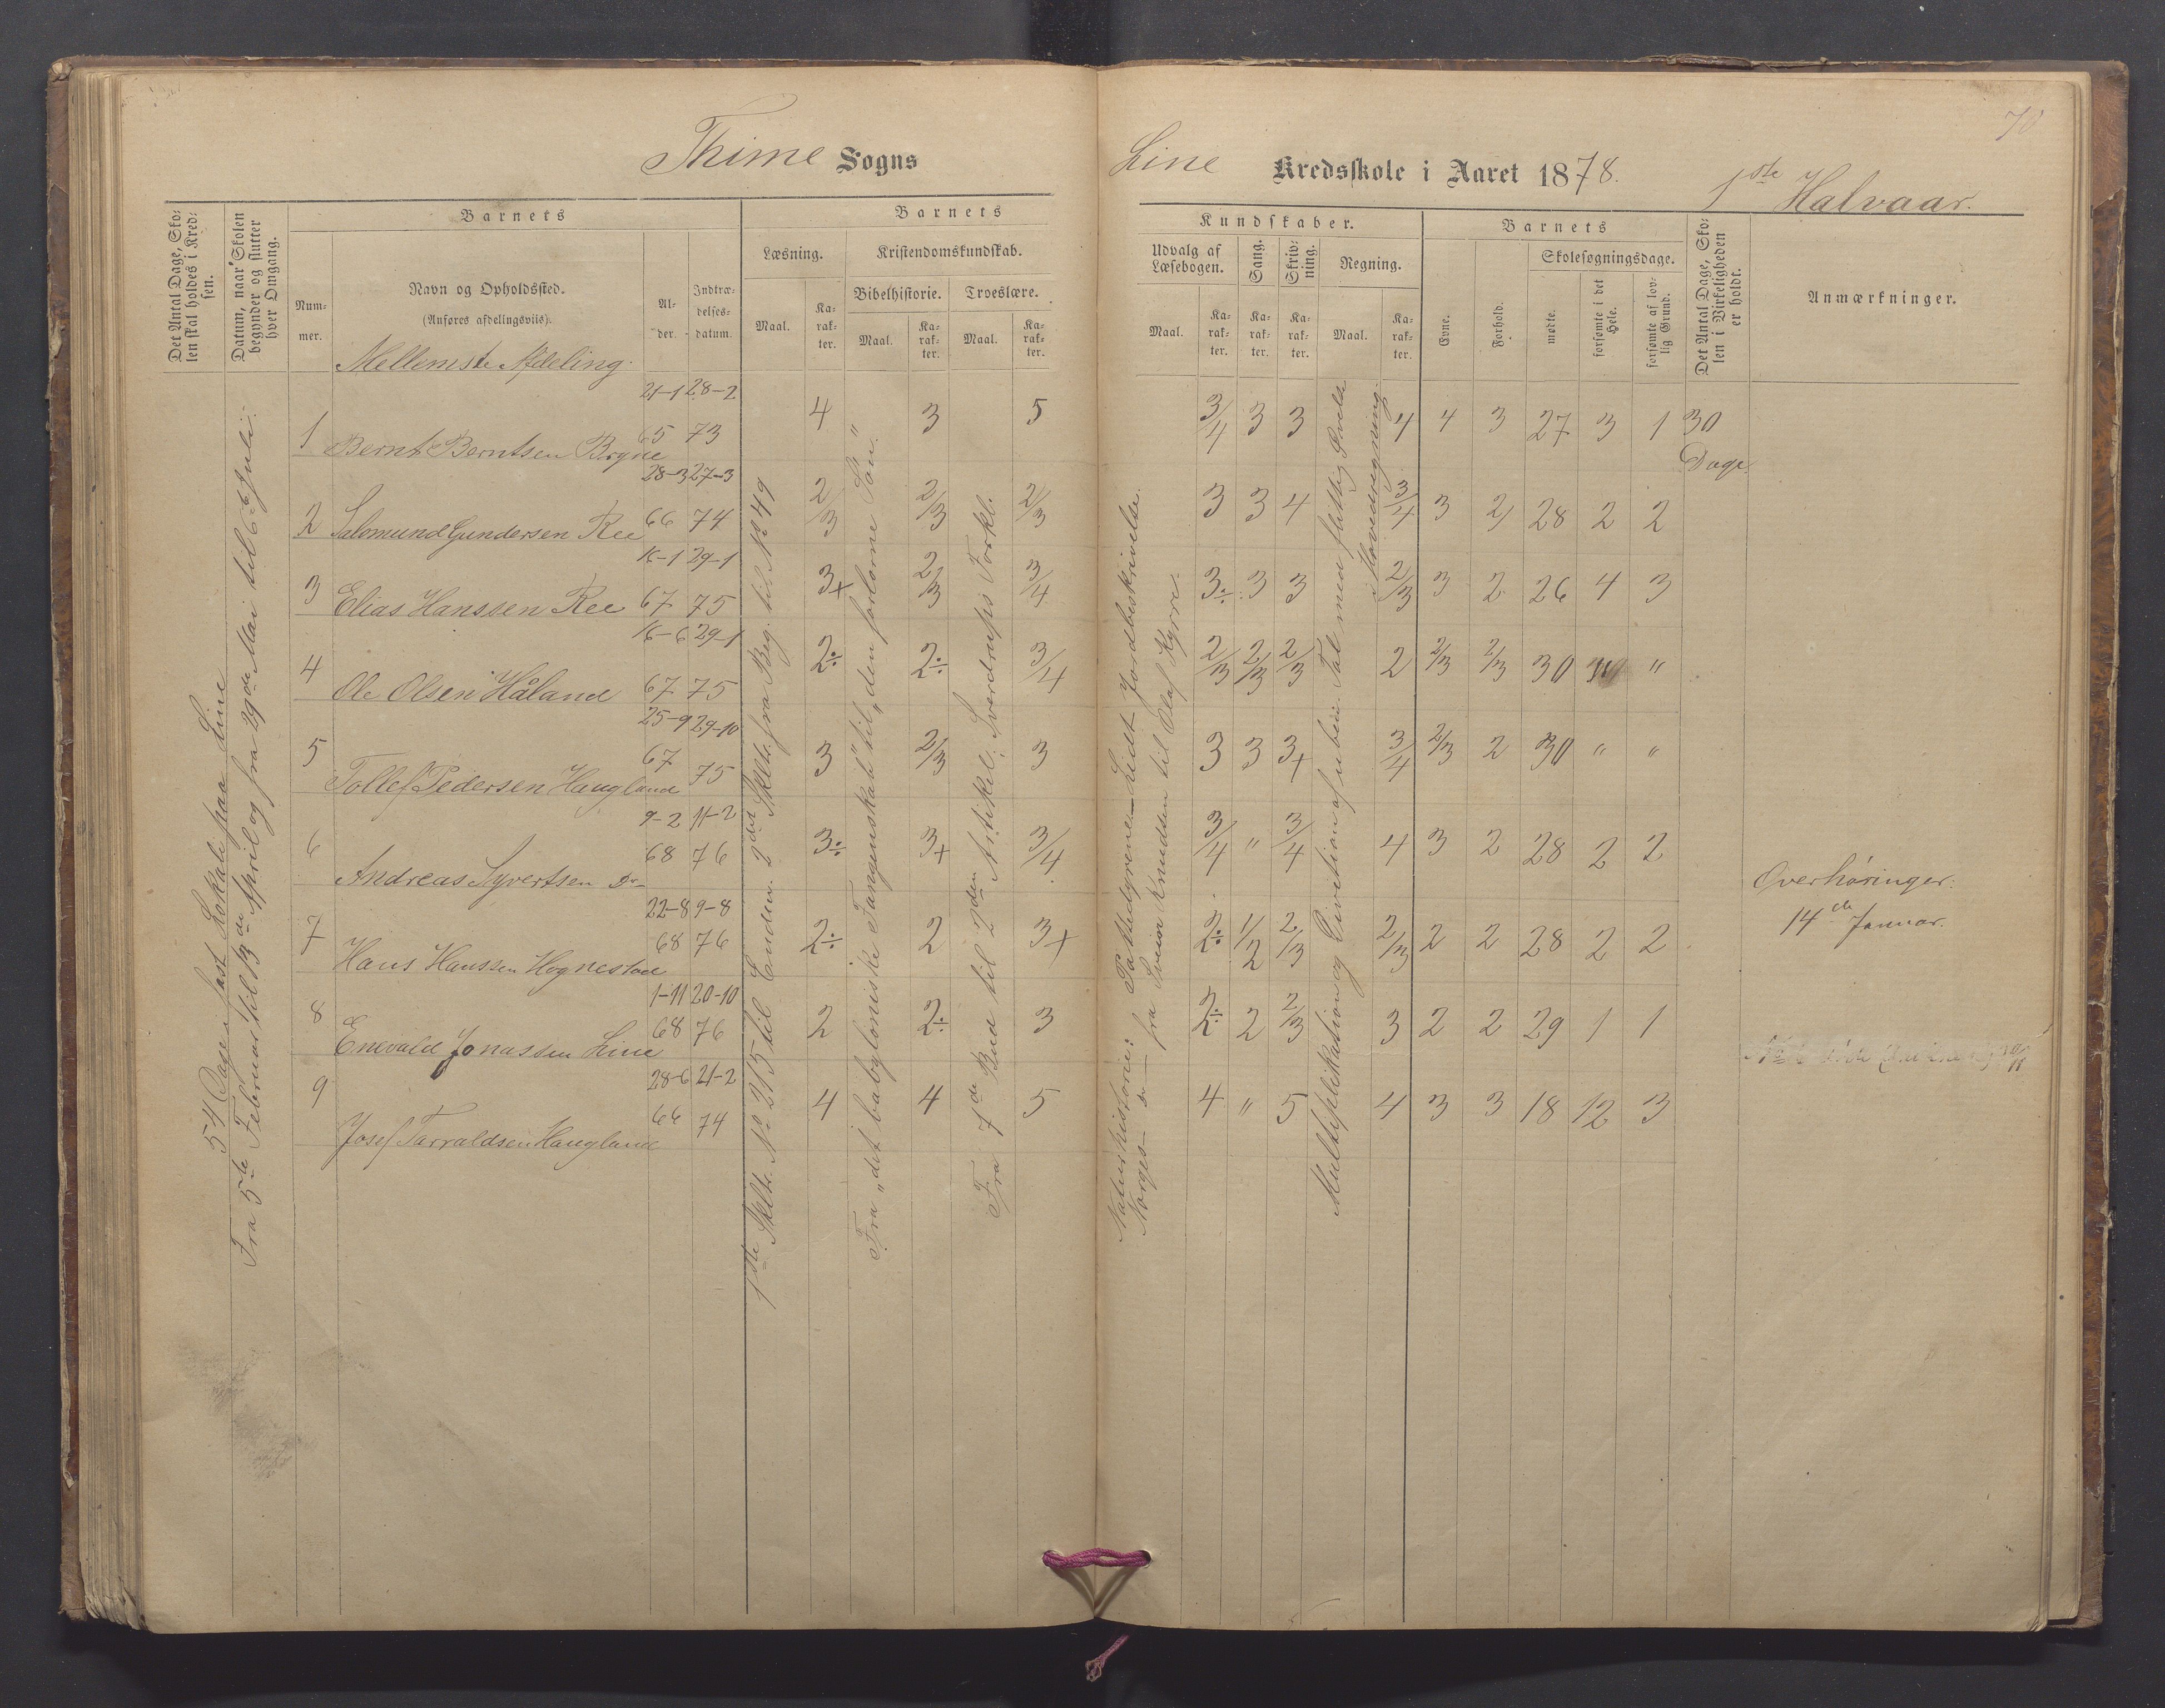 70
Thime Sogns
Line Kredsskole i Aaret 1878. 1ste Halvaar.
Det Antal Dage, Sko-
len skal holdes i Kred-
sen.
Datum, naar Skolen
begynder og slutter
hver Omgang.
Barnets
Num-
mer.
Navn og Opholdssted.
(Anføres afdelingsviis).
Mellemste Afdeling.
Al-
der.
Indtræ-
delses-
datum.
Barnets
Læsning.
Maal.
Ka-
rak-
ter.
Kristendomskundskab.
Bibelhistorie.
Maal.
Ka-
rak-
ter.
Troeslære.
Maal.
Ka-
rak-
ter.
Kundskaber.
Udvalg af
Læsebogen.
Maal.
Ka-
rak-
ter.
Sang.
Ka-
rak-
ter.
Skriv-
ning.
Ka-
rak-
ter.
Regning.
Maal.
Ka-
rak-
ter.
Barnets
Evne.
Forhold.
Skolesøgningsdage.
mødte.
forsømte i det
Hele.
forsømte af lov-
lig Grund.
Det Antal Dage, Sko-
len i Virkeligheden
er holdt.
Anmærkninger.
54 Dage i fast Lokale paa Line
Fra 5te Februar til 13de April og fra 29de Mai til 6te Juli.
1ste Skltr. No 215 til Enden. 2det Skltr. fra Beg. til No 49
Fra "det babyloniske Fangenskab" til "den forlorne Søn."
Fra 7de Bud til 2den Artikel. Sverdrups Forkl.
Naturhistorie: Pattedyrene – Lidt Jordbeskrivelse.
Norges do fra Sveior Knudsen til Olaf Kyrre.
Multiplikation og Division af ubein. Tal med flittig Øvelse
i Hovedregning.
1 Bernt Berntsen Bryne 21-1 65 28-2 73 4 3 5 3/4 3 3 4 4 3 27 3 1 30
Dage
2 Salomund Gundersen Ree 28-3 66 27-3 74 2/3 2/3 2/3 3 3 4 3/4 3 2 28 2 2
3 Elias Hanssen Ree 16-1 67 29-1 75 3+ 2/3 3/4 3÷ 3 3 2/3 3 2 26 4 3
4 Ole Olsen Håland 16-6 67 29-1 75 2÷ 2÷ 3/4 2/3 2/3 2/3 2 2/3 2/3 30 "
5 Tollef Pedersen Haugland 25-9 67 29-10 75 3 2/3 3 3 3 3+ 3/4 2/3 2 30 " "
6 Andreas Syvertsen Do 9-2 68 11-2 76 3÷ 3+ 3/4 3/4 " 3/4 4 3 2 28 2 2
7 Hans Hanssen Hognestad 22-8 68 9-8 76 2÷ 2 3+ 2÷ 1/2 2/3 2/3 2 2 28 2 2
8 Enevald Jonassen Line 1-11 68 20-10 76 2 2÷ 3 2÷ 2 2/3 3 2 2 29 1 1
9 Josef Tarraldsen Haugland 28-6 66 21-2 74 4 4 5 4 " 5 4 3 3 18 12 3
Overhøringer:
14de Januar.